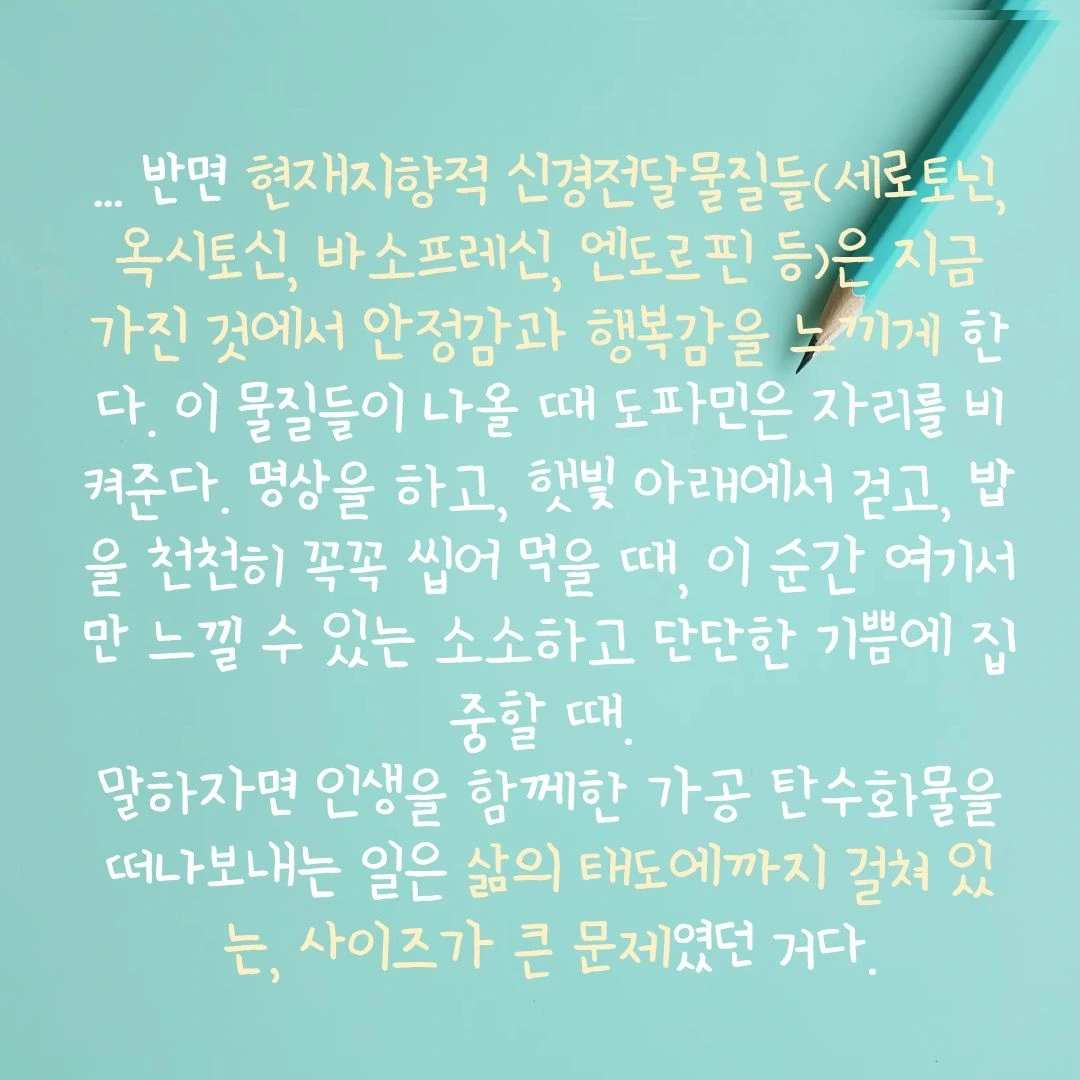 ... 반면 현재지향적 신경전달물질들(세로토닌,
옥시토신, 바소프레신, 엔도르핀 등)은 지금
가진 것에서 안정감과 행복감을 느끼게 한
다. 이 물질들이 나올 때 도파민은 자리를 비
켜준다. 명상을 하고, 햇빛 아래에서 걷고, 밥
을 천천히 꼭꼭 씹어 먹을 때, 이 순간 여기서
만 느낄 수 있는 소소하고 단단한 기쁨에 집
중할 때.
말하자면 인생을 함께한 가공 탄수화물을
떠나보내는 일은 삶의 태도에까지 걸쳐 있
는, 사이즈가 큰 문제였던 거다.